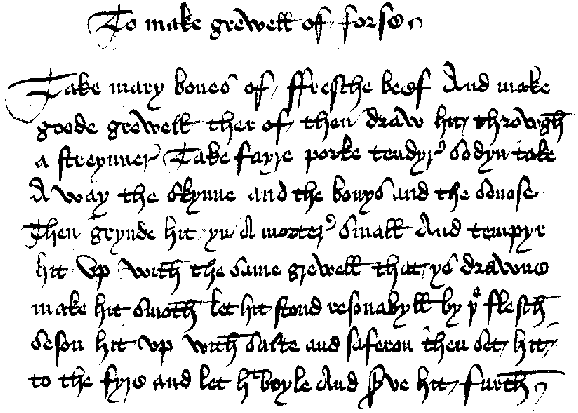 To make grewell of forse
Take mary bones of ffresche beef And make
goode grewell ther of then draw hit through
a streynner Take fayre porke tendyr sodyn take
A way the skynne and the bonys and the senose
Then grynde hit yn A morter small And tempyr
hit vp with the same grewell that ys drawne
make hit smoth let hit stond resonabyll by þe flesch
seson hit vp with salte and saferon then set hit
to the fyre and let hit boyle And serve hit furth